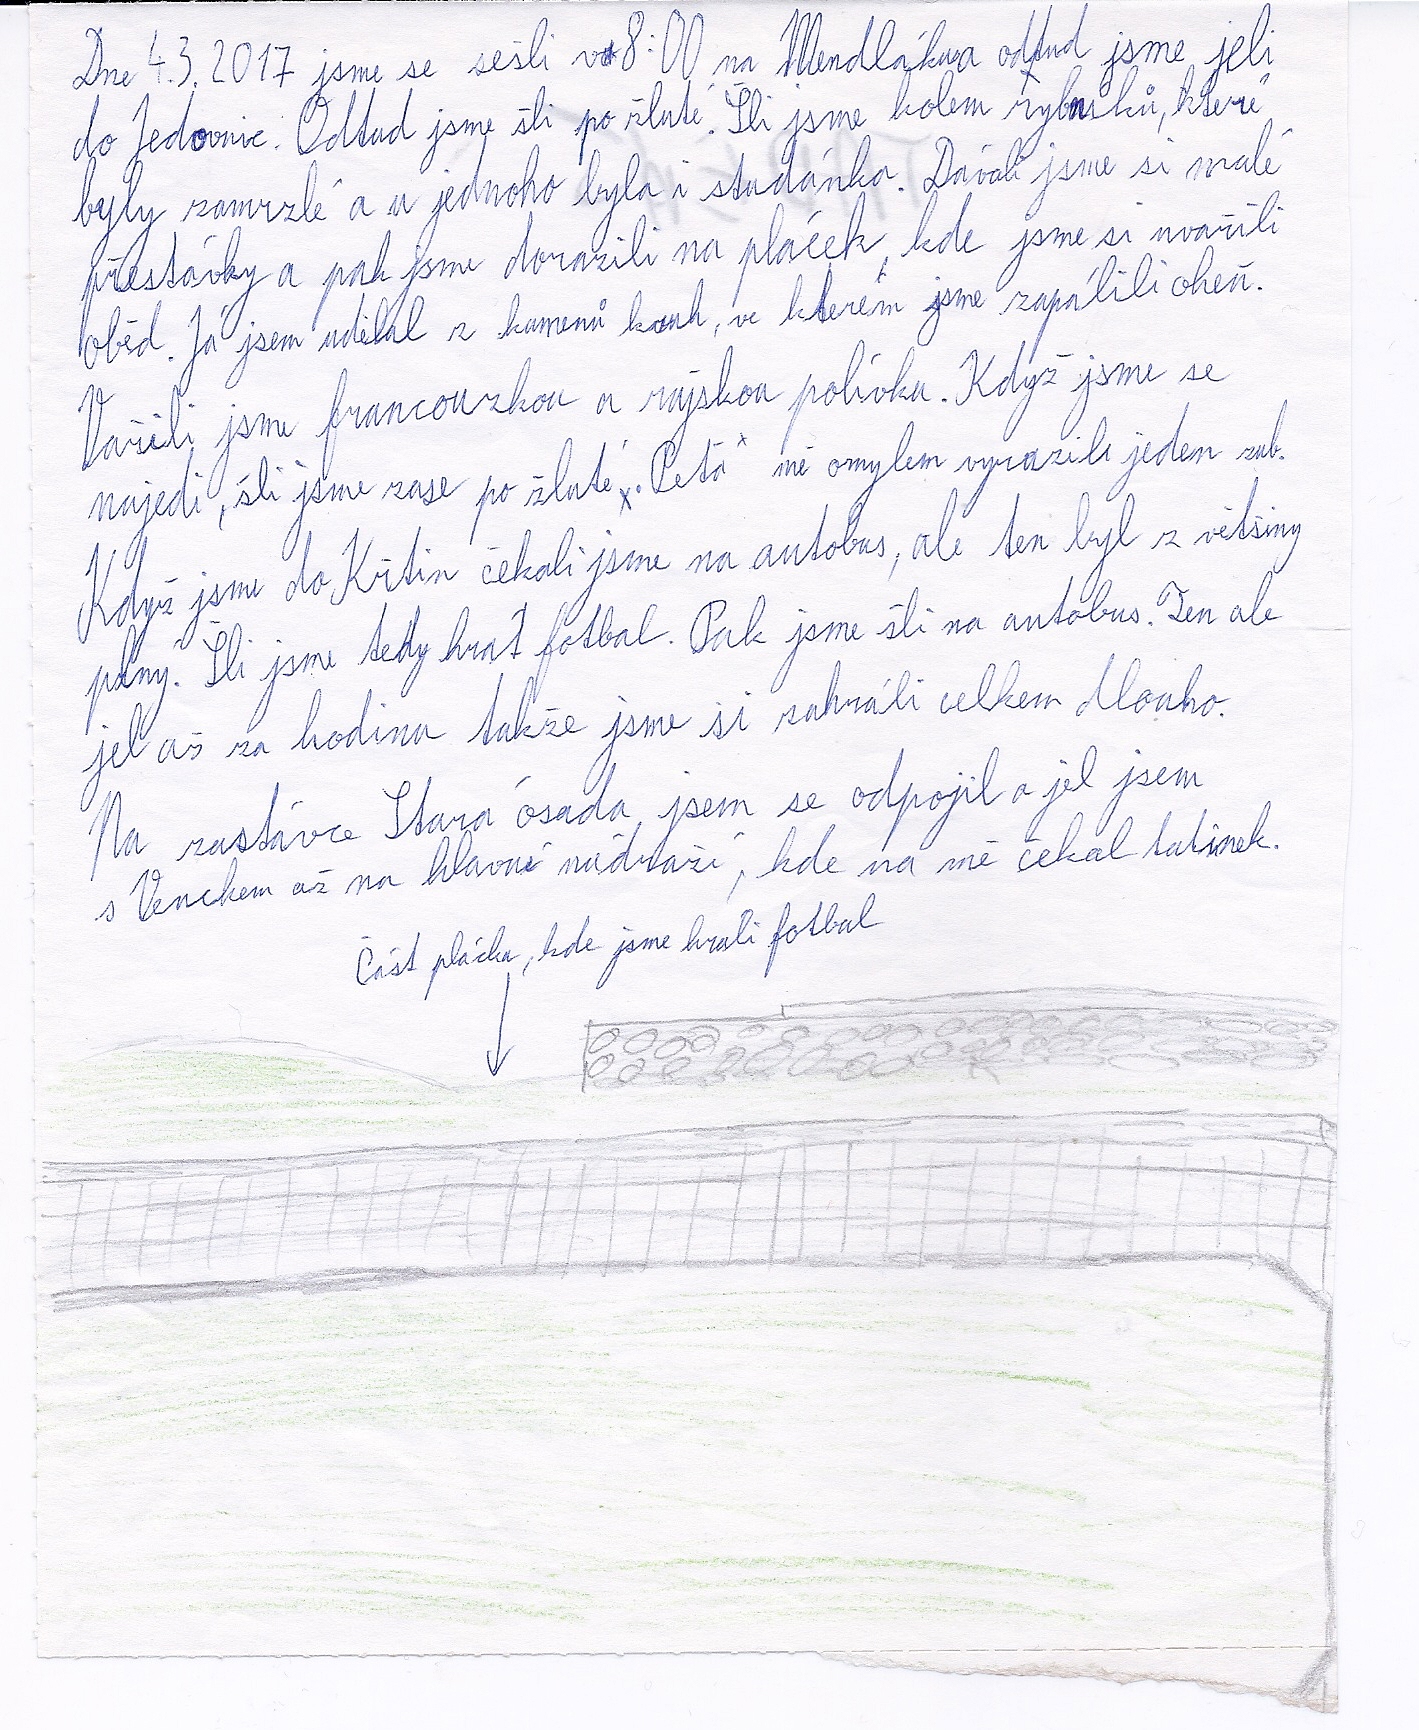 Dne 4.3. 2017 jsme se sešli v 8:00 na Mendláku a odtud jsme jeli
do Jedovnic. Odtud jsme šli po žluté. Šli jsme kolem rybníků, které
byly zamrzlé a u jednoho byla i studánka. Dávali jsme si malé
přestávky a pak jsme dorazili na pláček, kde jsme si uvařili
oběd. Já jsem udělal z kamenů kruh, ve kterém jsme zapálili oheň.
Vařili jsme francouzkou a rajskou polívku. Když jsme se
najedi, šli jsme zase po žluté. Péťa mě omylem vyrazili jeden zub.
Když jsme do Křtin čekali jsme na autobus, ale ten byl z většiny
plný. Šli jsme tedy hrát fotbal. Pak jsme šli na autobus. Ten ale
jel až za hodinu takže jsme si zahráli celkem dlouho.
Na zastávce Stará osada jsem se odpojil a jel jsem
s Venckem až na hlavní nádraží, kde na mě čekal tatínek.
Část plácku, kde jsme hráli fotbal